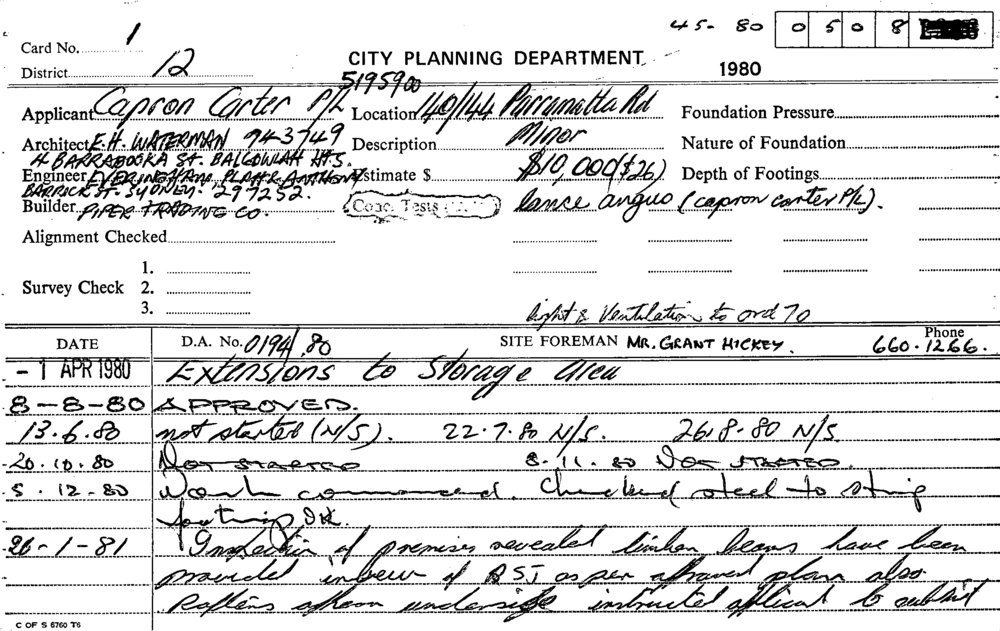 45-80 0508
Card No. 1
District 12
CITY PLANNING DEPARTMENT
1980
5195900
Applicant Capron Carter P/L Location 140/144 Parramatta Rd Foundation Pressure
Architect E.H. WATERMAN 943749 Description Minor Nature of Foundation
4 BARRABOOKA ST. BALGOWLAH HTS.
Engineer EVERINGHAM, Estimate $ $10,000 ($26) Depth of Footings
BARRACK ST. SYDNEY. 297252.
Builder PIPER TRADING CO. Conc. Tests lance angus (capron carter P/L).
Alignment Checked
1.
Survey Check 2.
3.
light & Ventilation to ord 70
DATE D.A. No. 0194/80 SITE FOREMAN MR. GRANT HICKEY. Phone 660.1266.
- 1 APR 1980 Extensions to Storage area
8-8-80 APPROVED.
13.6.80 not started (N/S). 22.7.80 N/S. 26.8.80 N/S.
20.10.80 NOT STARTED 8.11.80 NOT STARTED.
5.12.80 Work commenced. Checked steel to strip
footing OK.
26-1-81 Inspection of premises revealed timber beams have been
provided of RSJ as per plan also
Rafters underside instructed applicant to submit
C OF S 6760 T6